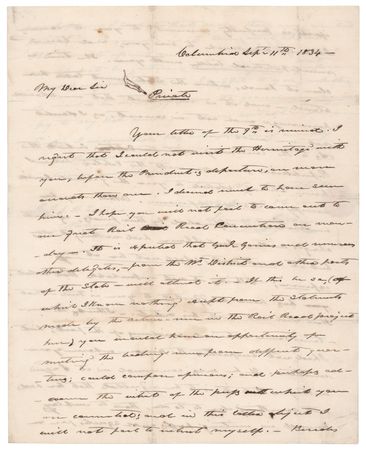 Columbia Sept 11th 1834 —
My Dear Sir Private
Your letter of the 9th is received. I
regret that I could not visit the Hermitage with
you, before the President's departure, on more
accounts than one. I desired much to have seen
him. — I hope you will not fail to come out to
our great Rail Road Convention on Mon-
-day. It is expected that Genl Gaines and numerous
other delegates, from the Wn. District and other parts
of the State — will attend it. — If this be so, (of
which I know nothing except from the Statements
made by the active men in the Rail Road project
here,) you would have an opportunity of
meeting the leading men from different quar-
-ters; could compare opinions; and perhaps ad-
-vance the interest of the press with which you
are connected; and in this latter object I
will not fail to interest myself. — Besides